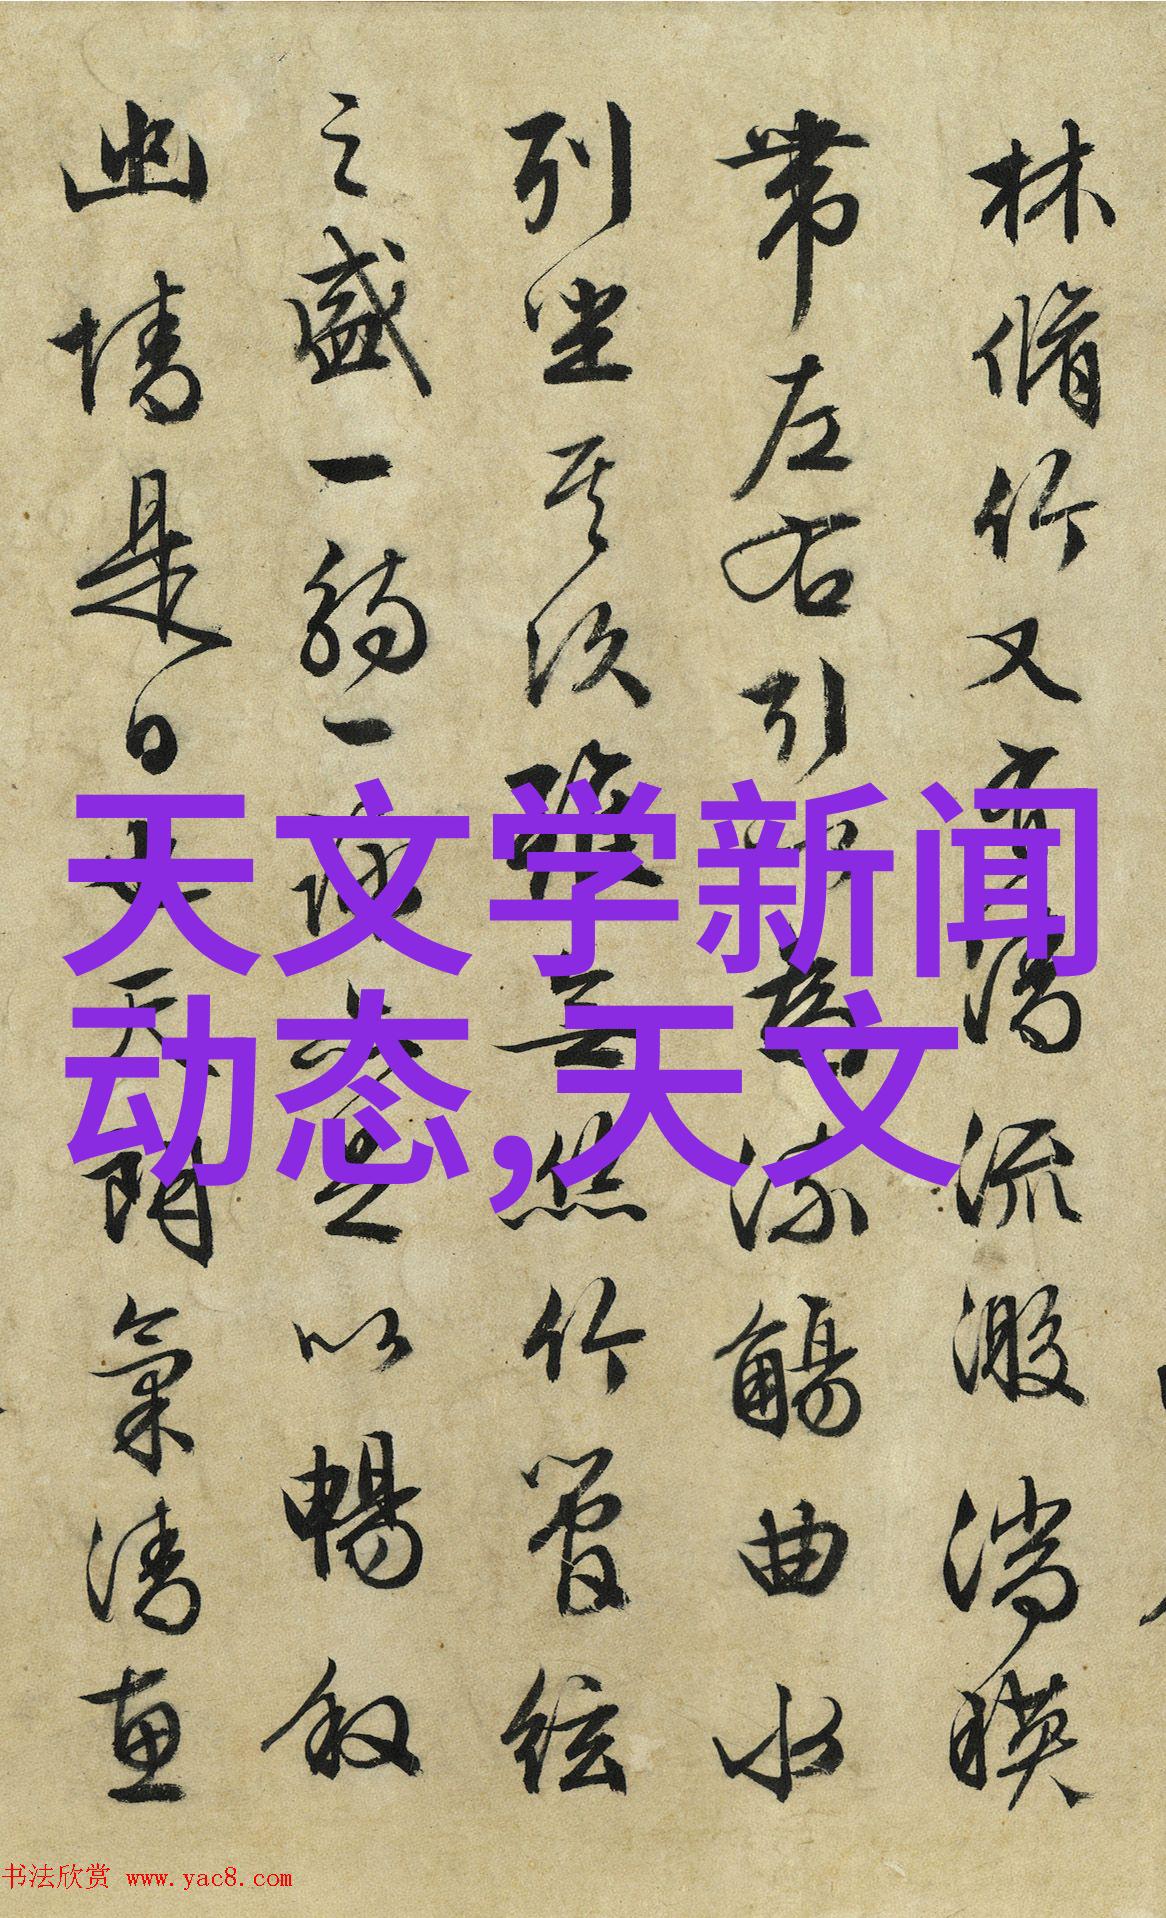 林脩竹又有清流激湍暎
帶左右引以為流觴曲水
列坐其次雖無絲竹管絃
之盛一觴一詠亦足以暢叙
幽情是日也天朗氣清惠
天文学新闻
动态,天文
书法欣赏 www.yac8.com